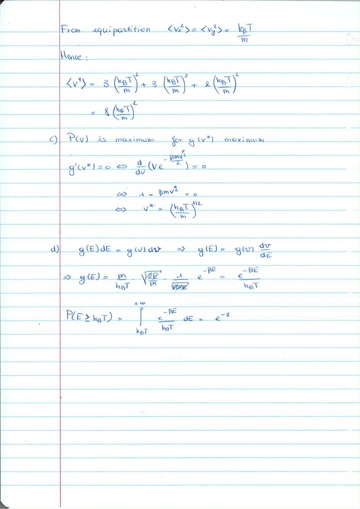 From equipartition ⟨v_x²⟩ = ⟨v_y²⟩ = k_BT/m
Hence:
⟨v⁴⟩ = 3 (k_BT/m)² + 3 (k_BT/m)² + 2 (k_BT/m)²
= 8 (k_BT/m)²
c) P(v) is maximum for g(v*) maximum
g'(v*) = 0 ⇔ d/dv (v e^{-βmv²/2}) = 0
⇔ 1 - βmv² = 0
⇔ v* = (k_BT/m)^{1/2}
d) g(E)dE = g(v)dv ⇒ g(E) = g(v) dv/dE
⇒ g(E) = m/k_BT · √(2E/m) · 1/√(2Em) e^{-βE} = e^{-βE}/k_BT
P(E ≥ k_BT) = ∫_{k_BT}^{+∞} e^{-βE}/k_BT dE = e^{-1}